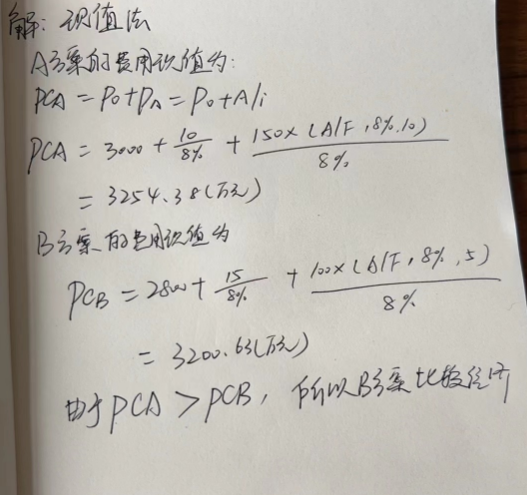 解：现值法
A方案的费用现值为：
PCA = P0+PA = P0+A/i
PCA = 3000 + 10/8% + 150×(A/F,8%,10)/8%
= 3254.38(万元)
B方案的费用现值为
PCB = 2800 + 15/8% + 100×(A/F,8%,5)/8%
= 3200.63(万元)
由于PCA > PCB，所以B方案比较经济